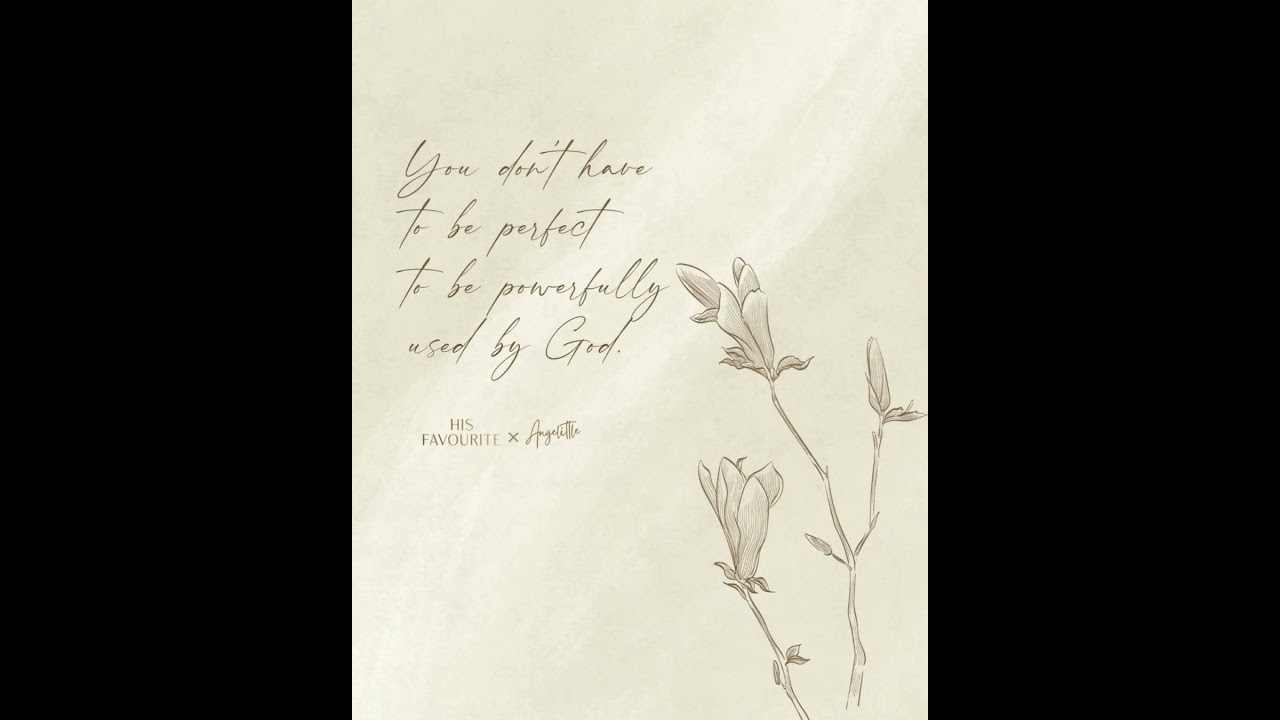 You don't have
to be perfect
to be powerfully
used by God.
HIS
FAVOURITE × Angelittle